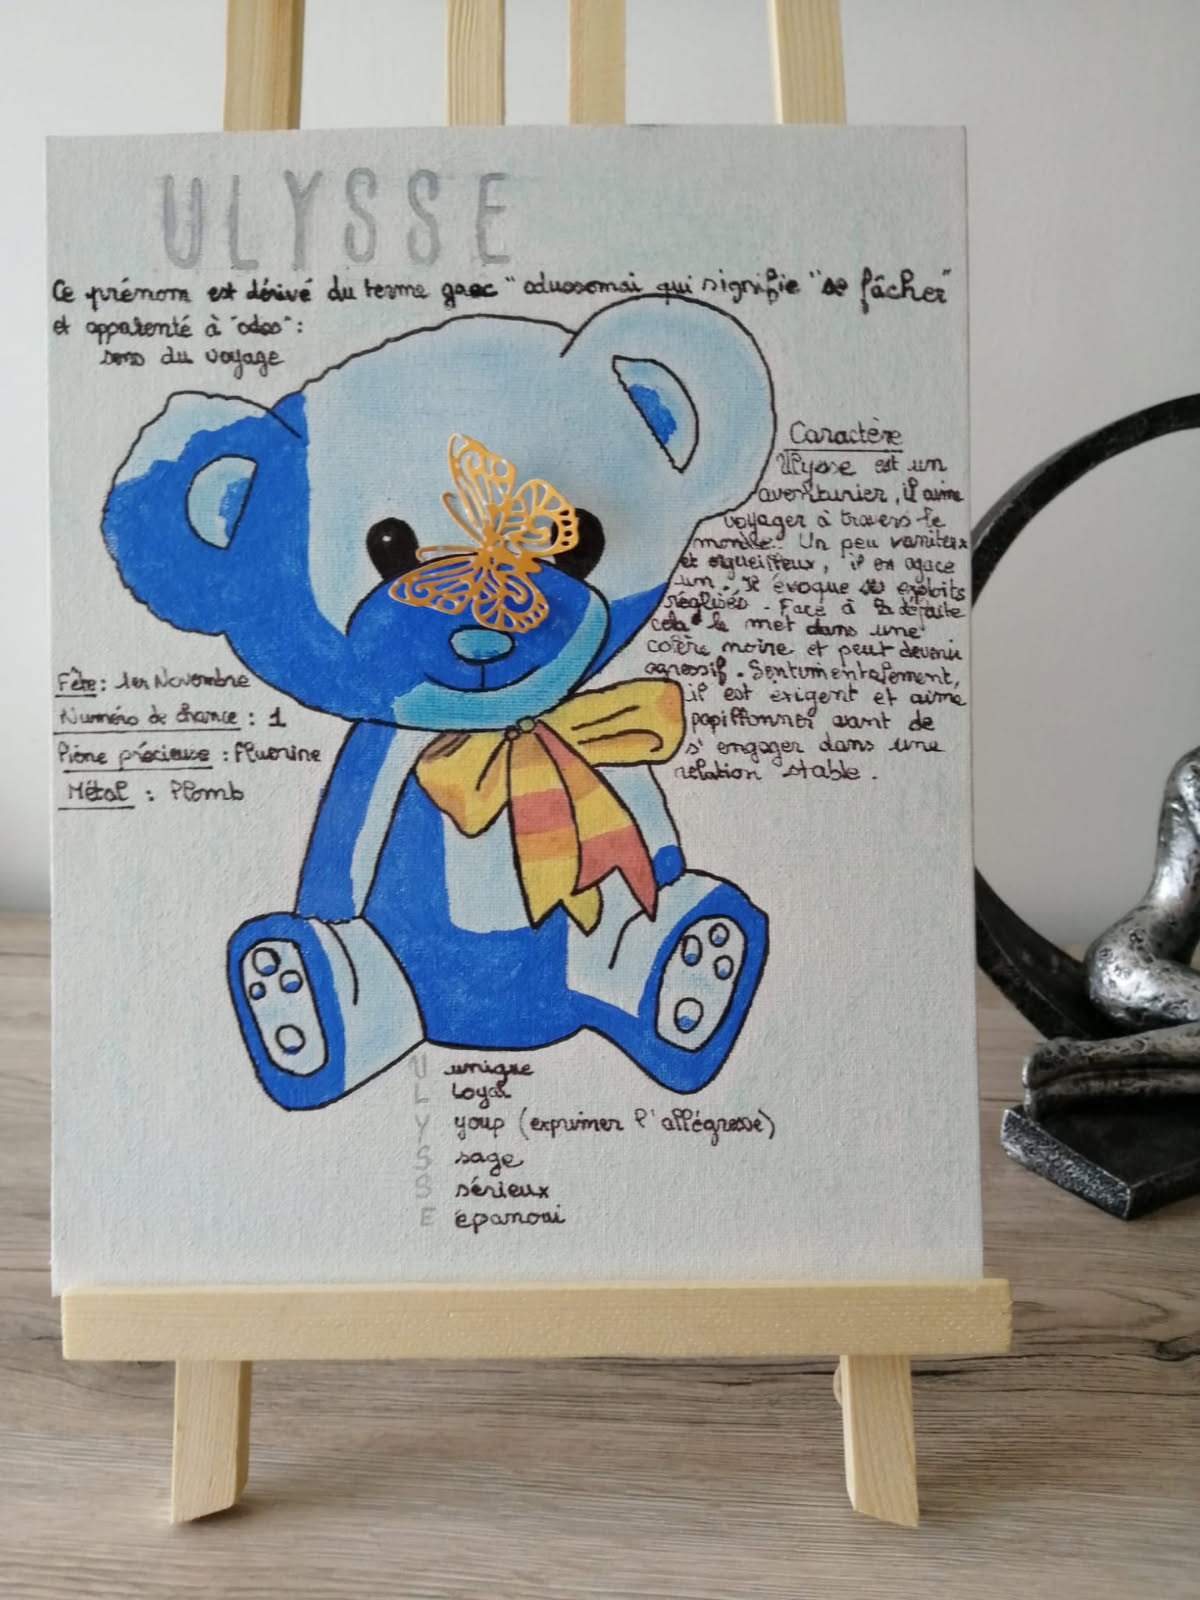 ULYSSE
Ce prénom est dérivé du terme grec "odussomai qui signifie "se fâcher"
et apparenté à "odos":
sens du voyage
Caractère
Ulysse est un
aventurier, il aime
voyager à travers le
monde. Un peu vaniteux
et orgueilleux, il en agace
un. Il évoque ses exploits
réglisés. Face à la défaite
cela le met dans une
colère noire et peut devenir
agressif. Sentimentalement,
il est exigent et aime
papillonner avant de
s'engager dans une
relation stable.
Fête : 1er Novembre
Numéro de chance : 1
Pière précieuse : Fluorine
Métal : Plomb
U unique
L loyal
Y youp (exprimer l'allégresse)
S sage
S sérieux
E épanoui